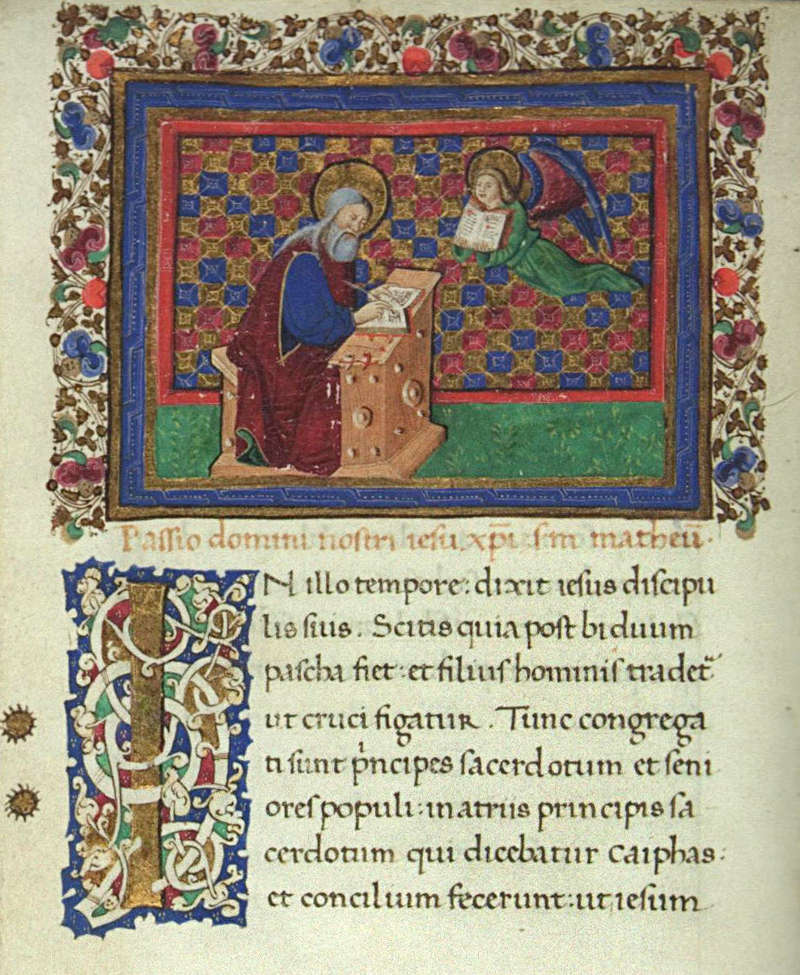 Passio domini nostri iesu. xp̄i. ſm matheū.
IN illo tempore: dixit iesus diſcipu
lis ſuis. Scitis quia poſt biduum
paſcha fiet: et filiuſ hominiſ tradet᷑
ut cruci figatur. Tunc congrega
ti ſunt pͥncipes ſacerdotum et ſeni
oreſ populi: in atriis principis ſa
cerdotum qui dicebatur caiphas:
et concilium fecerunt: ut ieſum